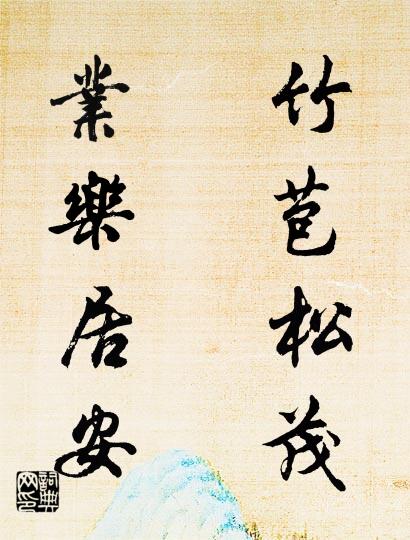 竹苞松茂
業樂居安
詞典
网印